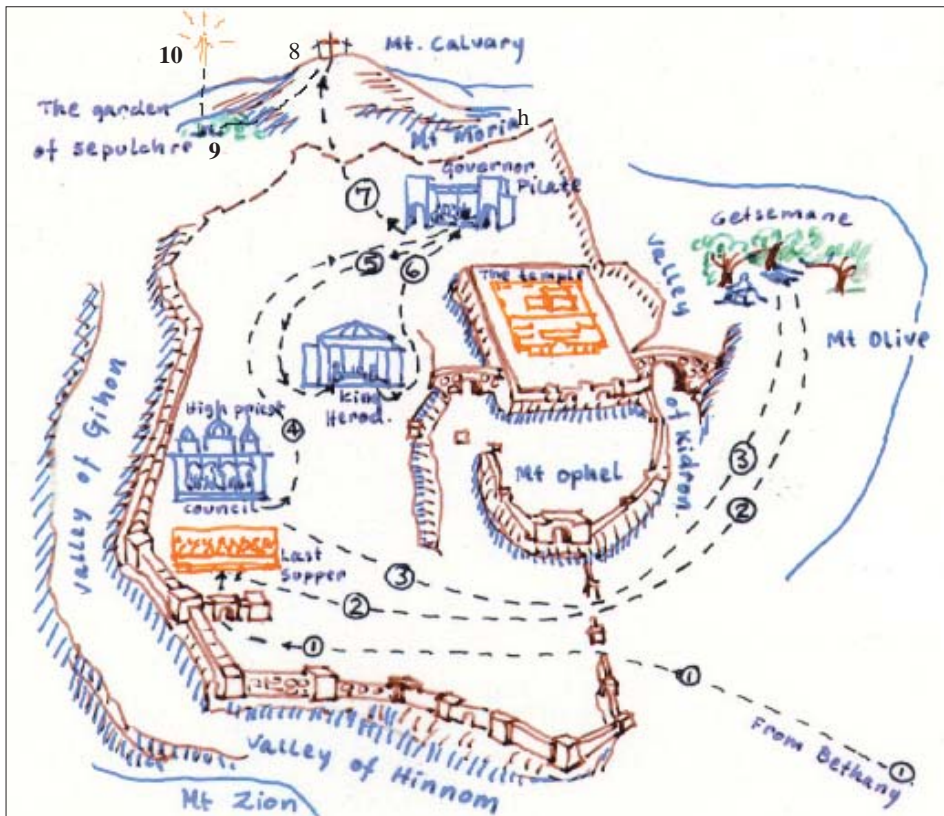 10
8
Mt. Calvary
The garden
of sepulchre
9
Mt Moriah
Governor
Pilate
7
5
6
The temple
Getsemane
Valley
of Kidron
Mt Olive
King
Herod.
High priest
4
council
Mt Ophel
3
2
Last
Supper
3
2
1
1
1
From Bethany
Valley of Gihon
Valley of Hinnom
Mt Zion